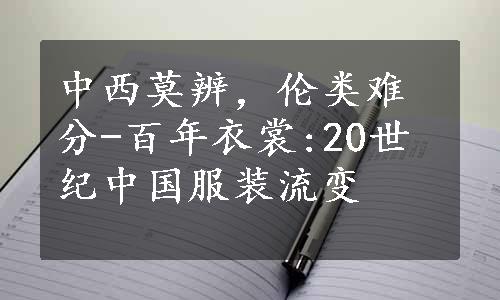 中西莫辨，伦类难
分-百年衣裳:20世
纪中国服装流变